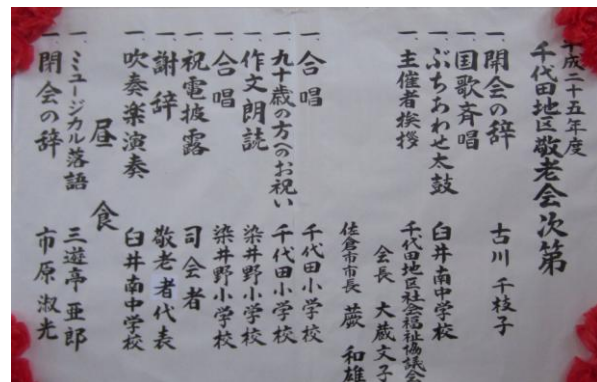 平成二十五年度
千代田地区敬老会次第
一、開会の辞 古川 千枝子
一、国歌斉唱
一、ぶちあわせ太鼓 臼井南中学校
一、主催者挨拶 千代田地区社会福祉協議会
会長 大蔵文子
佐倉市市長 蕨 和雄
一、合唱 千代田小学校
一、九十歳の方へのお祝い 千代田小学校
一、作文朗読 染井野小学校
一、合唱 染井野小学校
一、祝電披露 司会者
一、謝辞 敬老者代表
一、吹奏楽演奏 臼井南中学校
昼食
一、ミュージカル落語 三遊亭亜郎
一、閉会の辞 市原淑光